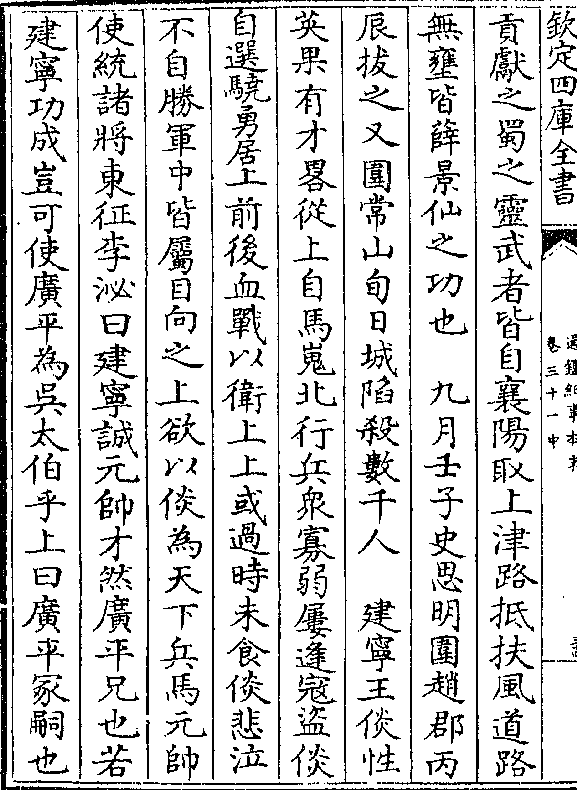 欽定四庫全書
卷三十一中
貢獻之蜀之靈武者皆自襄陽取上津路抵扶風道路
無壅皆薛景仙之功也　九月壬子史思明圍趙郡丙
辰拔之又圍常山旬日城陷殺數千人　建寧王倓性
英果有才畧從上自馬嵬北行兵衆寡弱屢逢寇盜倓
自選驍勇居上前後血戰以衛上上或過時未食倓悲泣
不自勝軍中皆屬目向之上欲以倓為天下兵馬元帥
使統諸將東征李泌曰建寧誠元帥才然廣平兄也若
建寧功成豈可使廣平為吳太伯乎上曰廣平冢嗣也